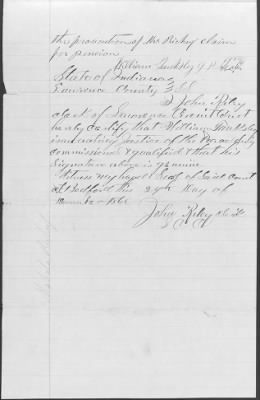 the prosecution of Mrs Richey claim
for pension
William J P
State of Indiana
Lawrence County } SS
I John Riley
clerk of Lawrence Circuit Court
hereby certify that William
is an acting Justice of the Peace duly
commissioned & qualified & that his
signature above is genuine
Witness my hand & Seal of Said Court
at Bedford this 24th day of
1866
John Riley Clk